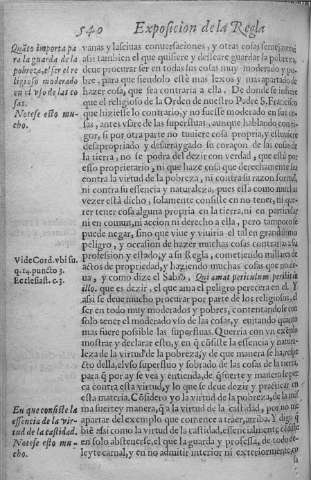 540 Exposicion de la Regla
Quāto importa pa
ra la guarda de la
pobreza, el ser el re
ligioso moderado
en el vso de las co
sas.
Notese esto mu-
cho.
vanas y lasciuas conuersaciones, y otras cosas
assi tambien el que quisiere y desseare guardar la pobreza,
deue procurar ser en todas sus cosas muy moderado y po-
bre, para que siendolo esté mas lexos y mas apartado de
hazer cosa, que sea contraria a ella. De donde se infiere
que el religioso de la Orden de nuestro Padre S. Francisco
que hiziesse lo contrario, y no fuesse moderado en sus co-
sas, antes vsare de las superfluas, aunque hablando con
gor, si por otra parte no tuuiere cosa propria, y estuuiere
desapropriado y desarraygado su coraçon de las cosas de
la tierra, no se podra del dezir con verdad, que està por
esso proprietario, ni que haze cosa que derechamente sea
contra la virtud de la pobreza, ni contra su razon formal,
ni contra su essencia y naturaleza, pues esta como muchas
vezes està dicho, solamente consiste en no tener, ni que-
rer tener cosa alguna propria en la tierra, ni en particular
ni en comun, ni accion ni derecho a ella, pero tampoco se
puede negar, sino que viue y viuirà el tal en grandissimo
peligro, y occasion de hazer muchas cosas contra
profession y estado, y a su Regla, cometiendo millares de
actos de propriedad, y haziendo muchas cosas que
ua, y como dize el Sabio, Qui amat periculum peribit in
illo. que es dezir, el que ama el peligro perecera en el. Y
assi se deue mucho procurar por parte de los religiosos, el
ser en todo muy moderados y pobres, contentandose con
solo tener el moderado vso de las cosas, y euitando quanto
mas fuere possible las superfluas. Querria con vn exemplo
mostrar y declarar esto, y en q̄ cōsiste la essencia y natu-
leza de la virtud de la pobreza, y de que manera se ha, respe-
cto della, el vso superfluo y sobrado de las cosas de la tierra,
para q̄ por ay se vea y entienda, de q̄ suerte y manera se pe-
ca contra esta virtud, y lo que se deue dezir y practicar en
esta materia. Cōsidero yo la virtud de la pobreza, de la mis-
ma suerte y manera, q̄ a la virtud de la castidad, por no me
apartar del exemplo que comence a traer, arriba. Y digo q̄
biē assi como la virtud de la castidad, essencialmente cōsiste
en solo abstenerse, el que la guarda y professa, de todo de-
leyte carnal, y en no admitir interior ni exteriormente
Vide Cord. vbi su.
q. 14. puncto 3.
Ecclesiast. c. 3.
En que consiste la
essencia de la vir-
tud de la castidad.
Notese esto mu-
cho.